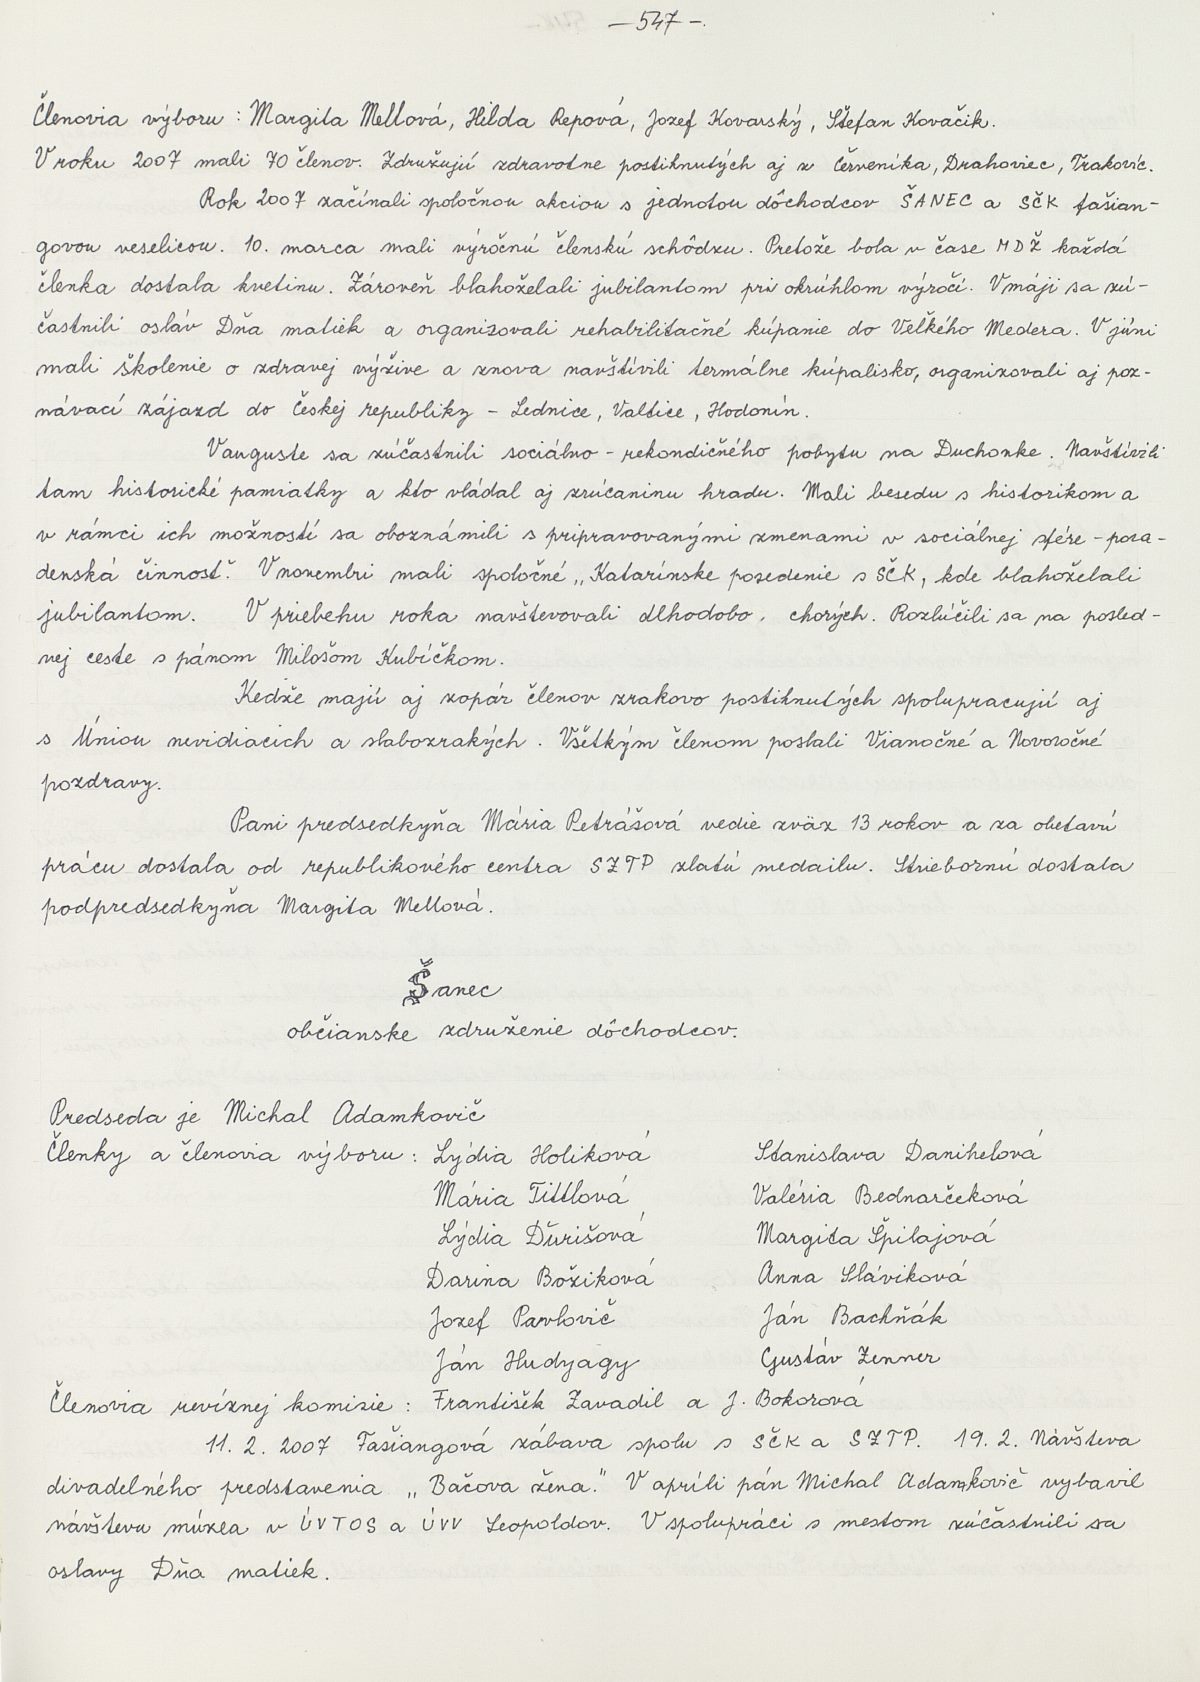 — 547 —.
Členovia výboru : Margita Mellová, Hilda Repová, Jozef Kovarský, Štefan Kovačik.
V roku 2007 mali 70 členov. Združujú zdravotne postihnutých aj z Červeníka, Drahoviec, Trakovíc.
Rok 2007 začínali spoločnou akciou s jednotou dôchodcov ŠANEC a SČK fašian-
govou veselicou. 10. marca mali výročnú členskú schôdzu. Pretože bola v čase MDŽ každá
členka dostala kvetinu. Zároveň blahoželali jubilantom pri okrúhlom výročí. V máji sa zú-
častnili osláv Dňa matiek a organizovali rehabilitačné kúpanie do Veľkého Medera. V júni
mali školenie o zdravej výžive a znova navštívili termálne kúpalisko, organizovali aj poz-
návací zájazd do Českej republiky – Lednice, Valtice, Hodonín.
V auguste sa zúčastnili sociálno - rekondičného pobytu na Duchonke. Navštívili
tam historické pamiatky a kto vládal aj zrúcaninu hradu. Mali besedu s historikom a
v rámci ich možností sa oboznámili s pripravovanými zmenami v sociálnej sfére - pora-
denská činnosť. V novembri mali spoločné „Katarínske posedenie s SČK, kde blahoželali
jubilantom. V priebehu roka navštevovali dlhodobo chorých. Rozlúčili sa na posled-
nej ceste s pánom Milošom Kubíčkom.
Kedže majú aj zopár členov zrakovo postihnutých spolupracujú aj
s Úniou nevidiacich a slabozrakých. Všetkým členom poslali Vianočné a Novoročné
pozdravy.
Pani predsedkyňa Mária Petrášová vedie zväz 13 rokov a za obetavú
prácu dostala od republikového centra SZTP zlatú medailu. Striebornú dostala
podpredsedkyňa Margita Mellová.
Šanec
občianske združenie dôchodcov.
Predseda je Michal Adamkovič
Členky a členovia výboru : Lýdia Holiková Stanislava Danihelová
Mária Tittlová Valéria Bednarčeková
Lýdia Ďurišová Margita Špilajová
Darina Božiková Anna Sláviková
Jozef Pavlovič Ján Bachňák
Ján Hudyagy Gustáv Zenner
Členovia revíznej komisie : František Zavadil a J. Bokorová
11. 2. 2007 Fašiangová zábava spolu s SČK a SZTP. 19. 2. Návšteva
divadelného predstavenia „Bačova žena." V apríli pán Michal Adamkovič vybavil
návštevu múzea v ÚVTOS a ÚVV Leopoldov. V spolupráci s mestom zúčastnili sa
oslavy Dňa matiek.